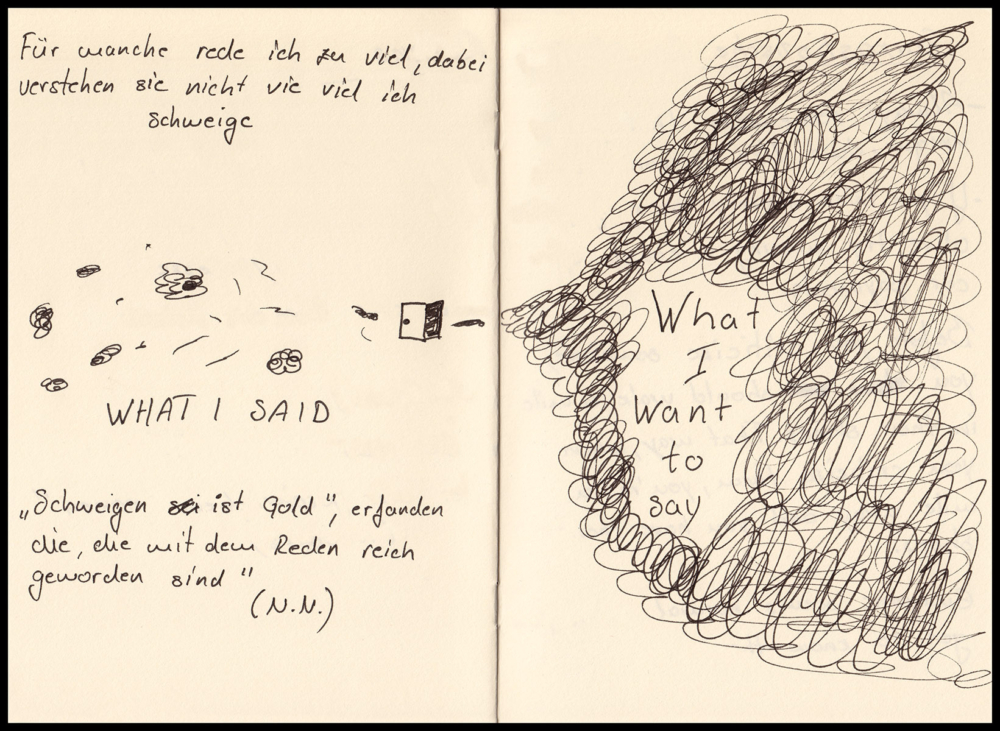 Für manche rede ich zu viel, dabei
verstehen sie nicht vie viel ich
schweige
WHAT I SAID
„Schweigen ist Gold", erfanden
die, die mit dem Reden reich
geworden sind"
(N.N.)
What
I
want
to
say